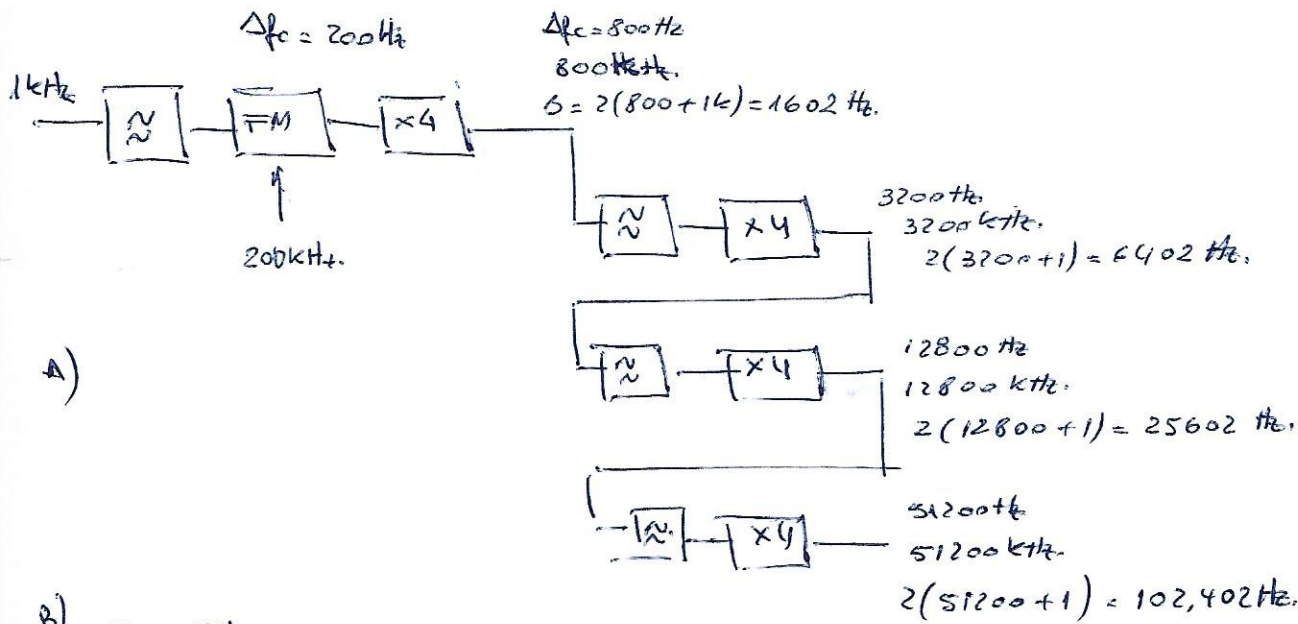 Δfc = 200Hz
Δfc = 800Hz
800kHz.
1kHz
B = 2(800+1k) = 1602 Hz.
≈ FM ×4
200kHz.
≈ ×4
3200Hz.
3200kHz.
2(3200+1) = 6402 Hz.
A)
≈ ×4
12800 Hz
12800 kHz.
2(12800+1) = 25602 Hz.
≈ ×4
51200Hz
51200kHz.
2(51200+1) = 102,402Hz.
B)